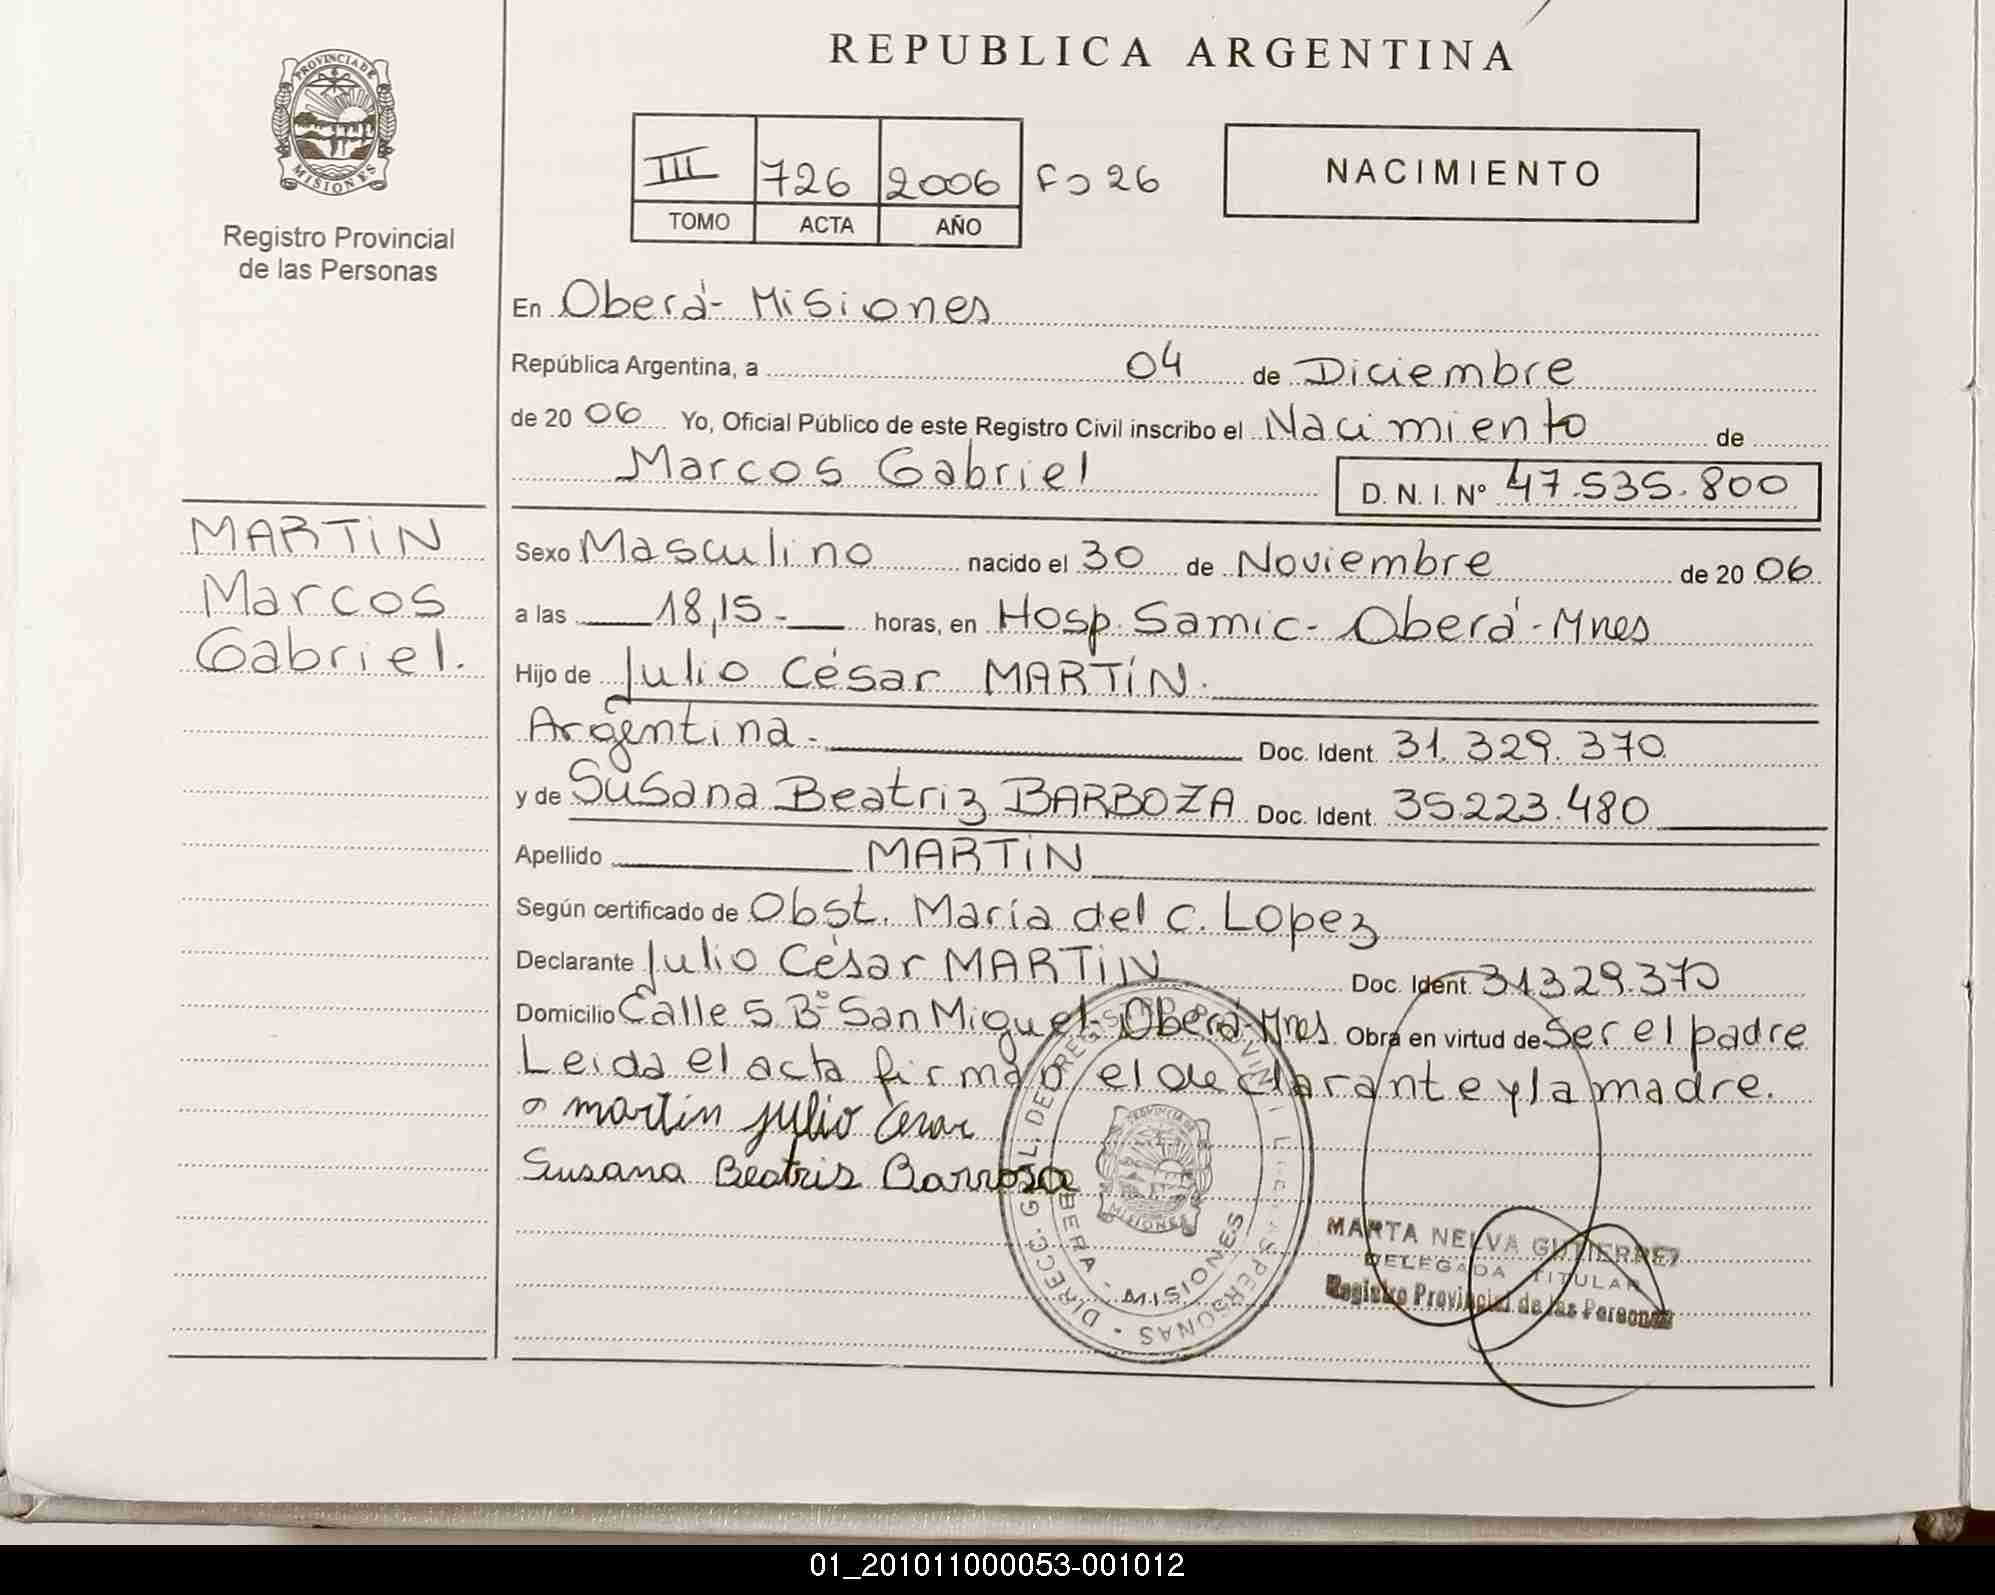 REPUBLICA ARGENTINA
PROVINCIA DE
MISIONES
Registro Provincial
de las Personas
III 726 2006 Fº 26
TOMO ACTA AÑO
NACIMIENTO
En Oberá - Misiones
República Argentina, a 04 de Diciembre
de 20 06 Yo, Oficial Público de este Registro Civil inscribo el Nacimiento de
Marcos Gabriel D. N. I. Nº 47.535.800
MARTiN
Marcos
Gabriel.
Sexo Masculino nacido el 30 de Noviembre de 20 06
a las 18,15 - horas, en Hosp. Samic - Oberá - Mnes
Hijo de Julio César MARTíN.
Argentina. - Doc. Ident. 31.329.370
y de Susana Beatriz BARBOZA Doc. Ident. 35223.480
Apellido MARTiN
Según certificado de Obst. María del C. Lopez
Declarante Julio César MARTiN Doc. Ident. 31329.370
Domicilio Calle 5 Bº San Miguel - Oberá - Mnes Obra en virtud de Ser el padre
Leida el acta firman el declarante y la madre.
martin julio Cesar
Susana Beatris Barrosa
DIRECC. GRAL. DEL REGISTRO PROVINCIAL DE LAS PERSONAS
OBERA - MISIONES
PROVINCIA DE
MISIONES
MARTA NELVA GUTIERREZ
DELEGADA TITULAR
Registro Provincial de las Personas
01_201011000053-001012